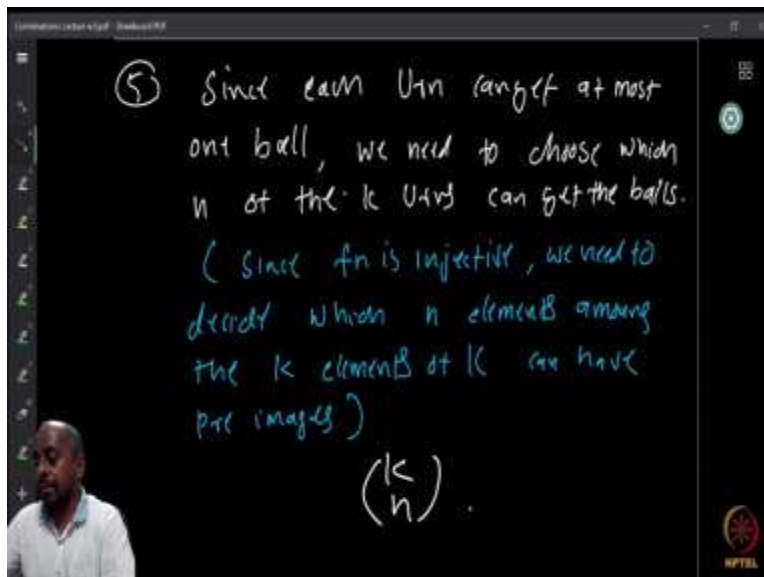 Combinatorics Lecture w5.pdf Drawboard PDF
⑤ Since each Urn can get at most
one ball, we need to choose which
n of the k Urns can get the balls.
( Since fn is injective, we need to
decide which n elements among
the k elements of K can have
pre images )
(k
n) .
NPTEL